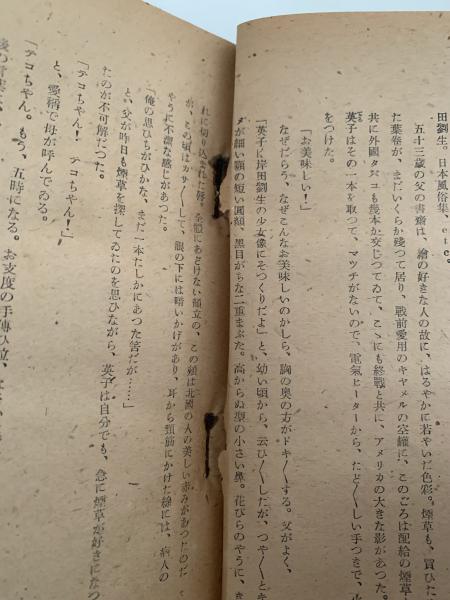 田劉生。日本風俗集、etc。
五十三歳の父の書齋は、繪の好きな人の故に、はるやかに若やいだ色彩。煙草も、買ひた
た葉卷が、まだいくらか殘つて居り、戰前愛用のキャメルの空罐に、このごろは配給の煙草
共に外國タバコも幾本か交じつてゐて、こゝにも終戰と共に、アメリカの大きな影があつた。
英子はその一本を取つて、マツチがないので、電氣ヒーターから、たど〱しい手つきで、火
をつけた。
「お美味しい！」
なぜだらう、なぜこんなお美味しいのかしら、胸の奥の方がドキ〱する。父がよく、
「英子に岸田劉生の少女像にそつくりだよ」と、幼い頃から、云ひ〱しだが、つや〱と
が細い顎の短い圓顏、黑目がちな二重まぶた。高からぬ型の小さい鼻。花びらのやうに、
れに切り込まれた唇。全體にあどけない顏立の、この頰は北國の人の美しい赤みがあつたのだ
が、この頃はカサ〱して、眼の下には暗いかげがあり、耳から頸筋にかけた線には、病人の
やうに不潔な感じがあつた。
「俺の思ひちがひかな、まだ一本たしかにあつた筈だが……」
と、父が昨日も煙草を探してゐたのを思ひながら、英子は自分でも、急に煙草が好きになつ
たのが不可解だつた。
「テコちやん！　テコちやん！」
と、愛稱で母が呼んでゐる。
「テコちやん。もう、五時になる。お支度の手傳ひ